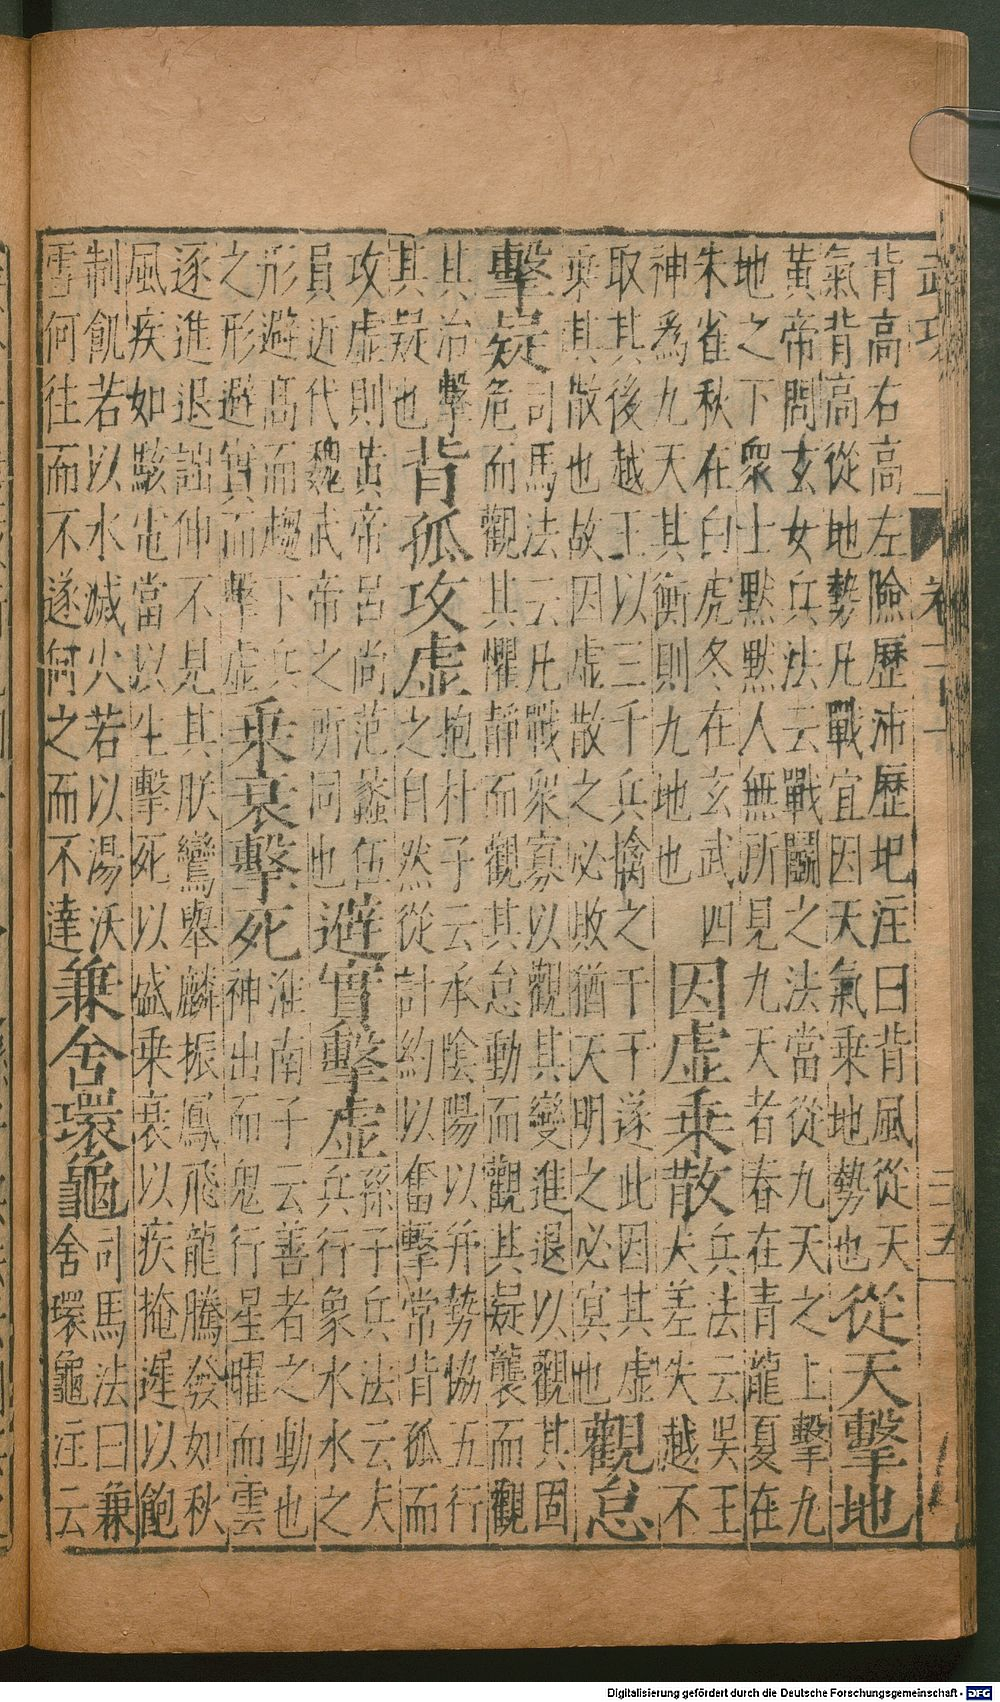 背高右高左險歷沛歷圯注曰背風從天
氣背高從地勢凡戰宜因天氣乘地勢也
從天擊地
黃帝問玄女兵法云戰鬭之法當從九天之上擊九
地之下眾士默默人無所見九天者春在青龍夏在
朱雀秋在白虎冬在玄武四
神爲九天其衝則九地也
因虛乘散
兵法云吳王
夫差失越不
取其後越王以三千兵擒之干干遂此因其虛
乘其散也故因虛散之必敗猶天明之必冥也
觀怠
擊疑
司馬法云凡戰眾寡以觀其變進退以觀其固
危而觀其懼靜而觀其怠動而觀其疑襲而觀
其治擊
其疑也
背孤攻虛
抱朴子云承陰陽以并勢協五行
之自然從計約以奮擊常背孤而
攻虛則黃帝呂尚范蠡伍
員近代魏武帝之所同也
避實擊虛
孫子兵法云夫
兵行象水水之
形避高而趨下兵
之形避實而擊虛
乘衰擊死
淮南子云善者之動也
神出而鬼行星曜而雲
逐進退詘伸不見其朕鸞舉麟振鳳飛龍騰發如秋
風疾如駭電當以生擊死以盛乘衰以疾掩遲以飽
制飢若以水滅火若以湯沃
雪何往而不遂何之而不達
兼舍環龜
司馬法曰兼
舍環龜注云
Digitalisierung gefördert durch die Deutsche Forschungsgemeinschaft - DFG